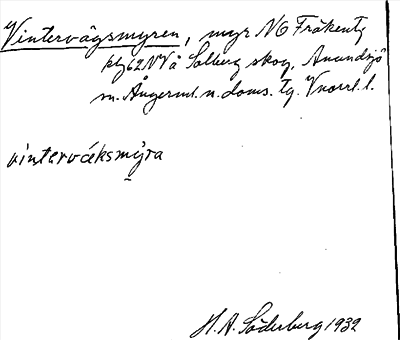 Vintervägsmyren, myr NO Fräkentj
på 62 NVå Solberg skog, Anundsjö
sn. Ångerml. n. doms. tg. Vnorrl. l.
vinterváksmyra
H. A. Söderberg 1932